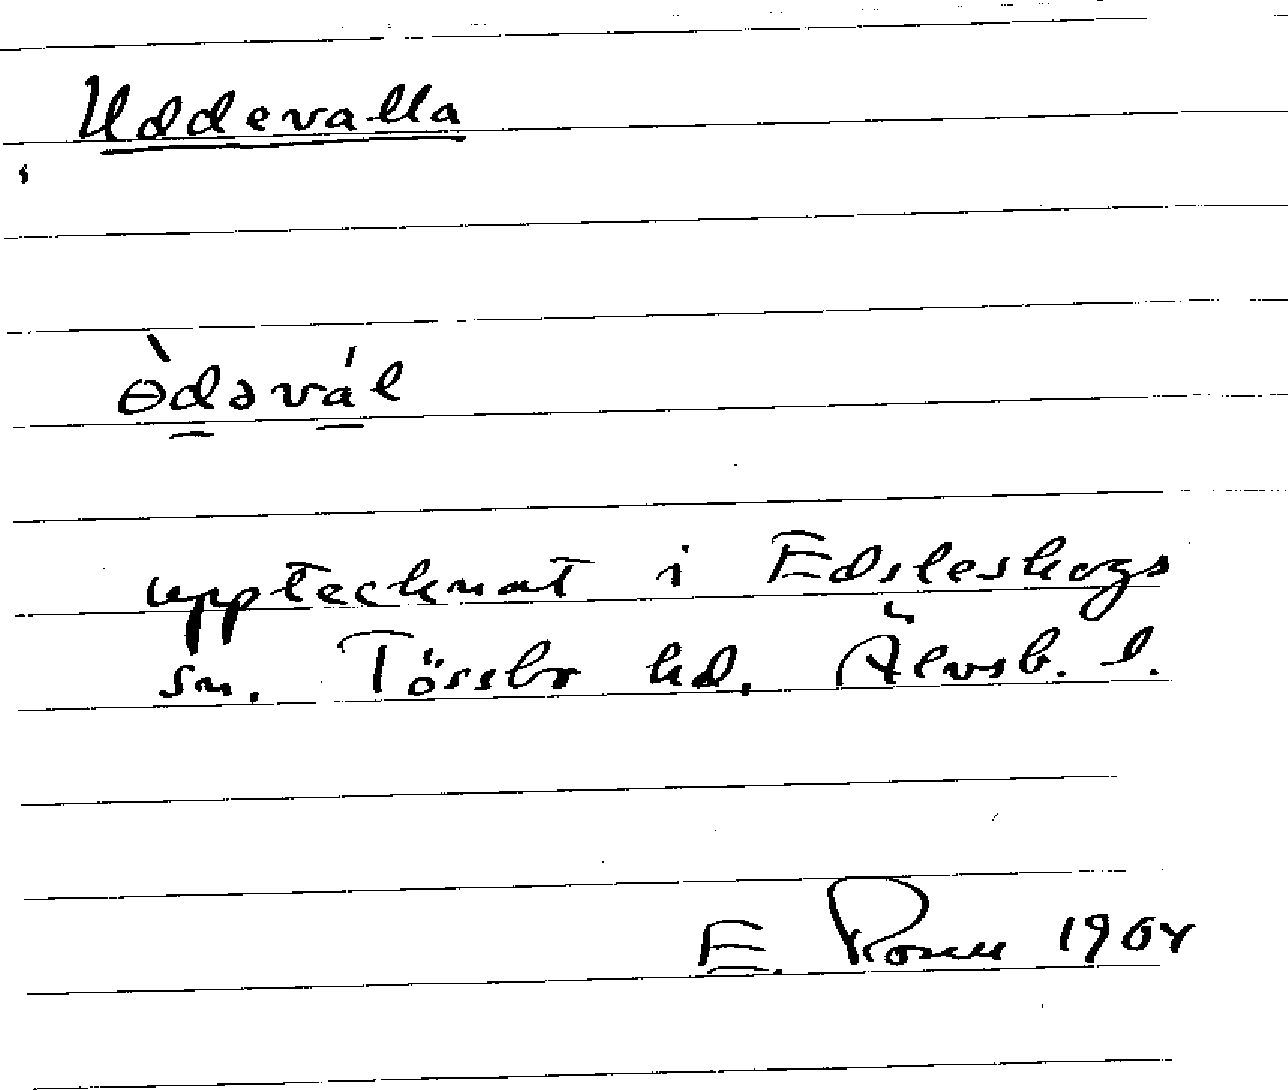 Uddevalla
ɵ̀dəvál
upptecknat i Edsleskogs
sn. Tössbo hd. Älvsb. l.
E. Rosell